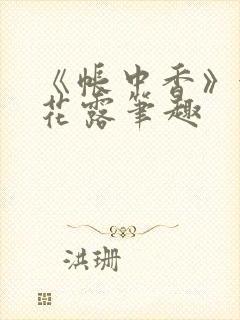 《帐中香》
花露笔趣
洪珊